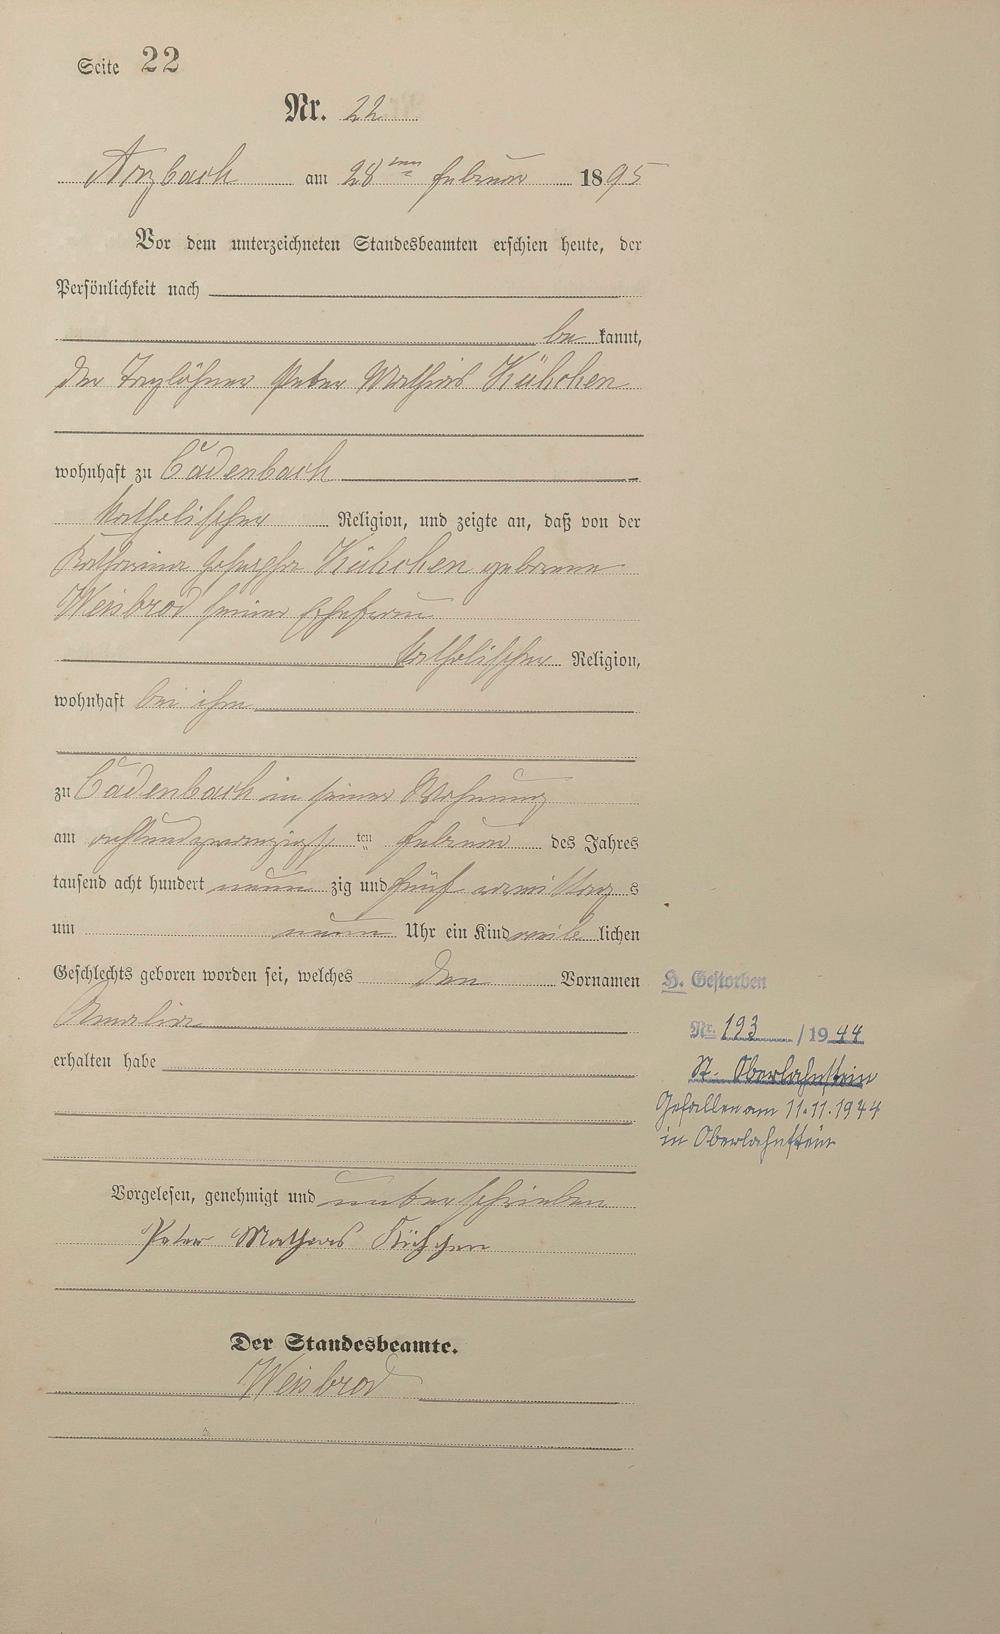 Seite 22
Nr. 22
Arzbach am 28ten Februar 1895
Vor dem unterzeichneten Standesbeamten erschien heute, der
Persönlichkeit nach
be kannt,
der Taglöhner Peter Mathias Kühchen
wohnhaft zu Cadenbach
katholischer Religion, und zeigte an, daß von der
Katharina Josepha Kühchen geborene
Weisbrod seiner Ehefrau
katholischer Religion,
wohnhaft bei ihm
zu Cadenbach in seiner Wohnung
am achtundzwanzigsten Februar des Jahres
tausend acht hundert neun zig und fünf vormittag s
um neun Uhr ein Kind weib lichen
Geschlechts geboren worden sei, welches den Vornamen
Amalia
erhalten habe
H. Gestorben
Nr. 193 / 1944
St. Oberlahnstein
Gefallen am 11.11.1944
in Oberlahnstein
Vorgelesen, genehmigt und unterschrieben
Peter Mathias Kühchen
Der Standesbeamte.
Weisbrod